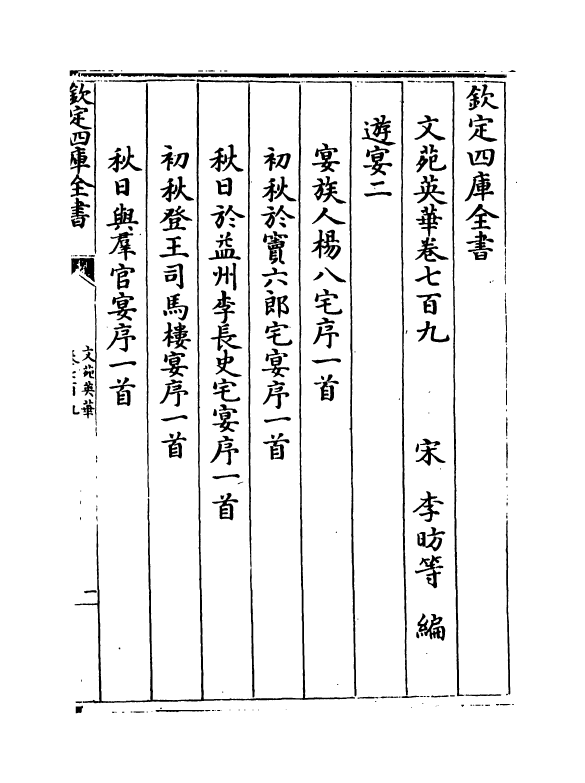 欽定四庫全書
文苑英華卷七百九　宋　李昉等　編
遊宴二
宴族人楊八宅序一首
初秋於竇六郎宅宴序一首
秋日於益州李長史宅宴序一首
初秋登王司馬樓宴序一首
秋日與羣官宴序一首
欽定四庫全書
文苑英華
卷七百九
二